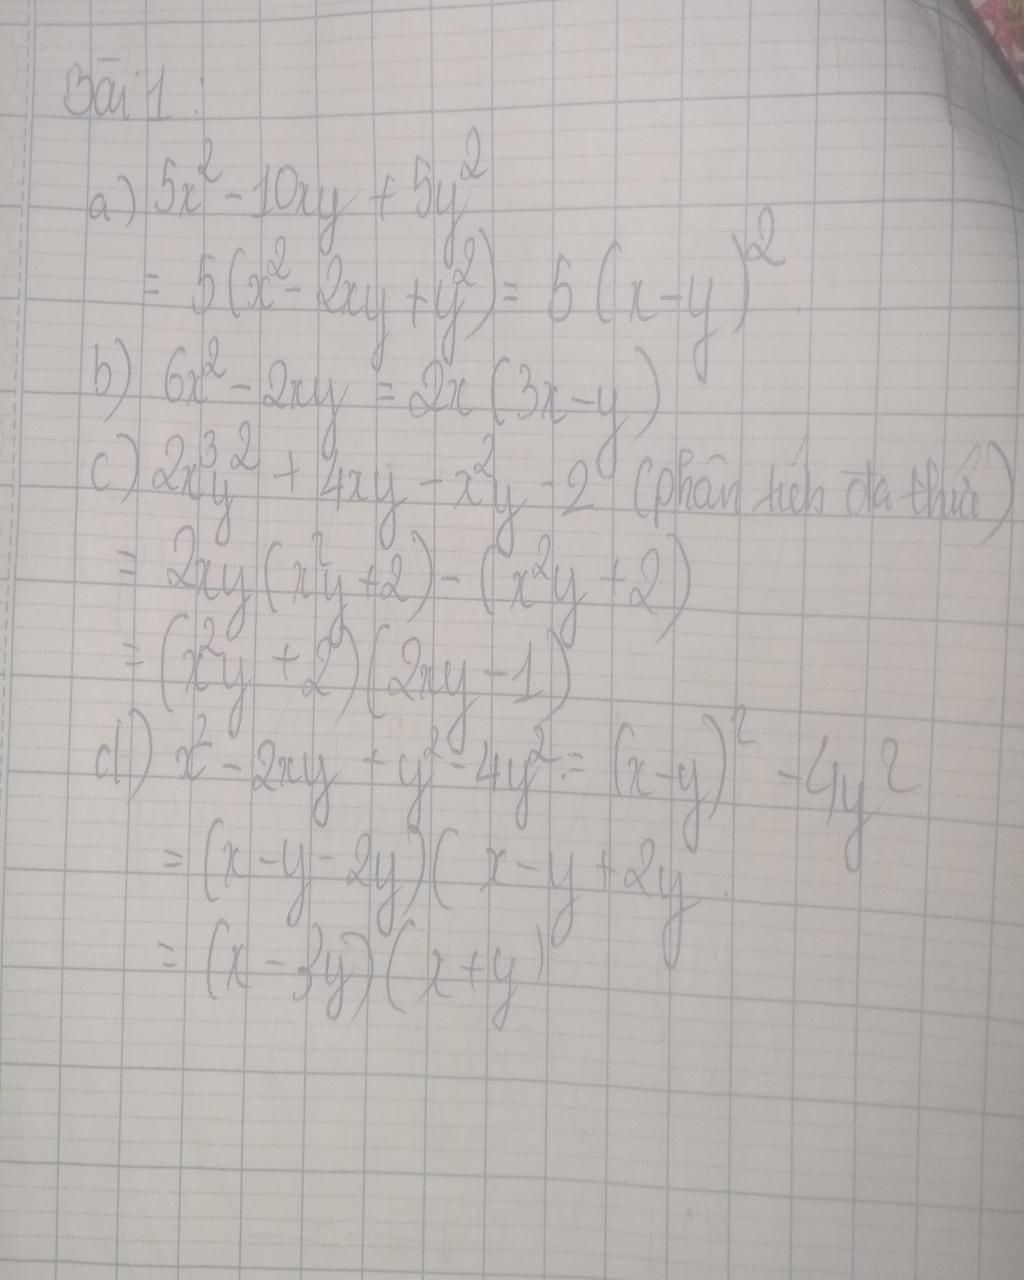 Bài 1:
a) 5x² - 10xy + 5y²
= 5(x² - 2xy + y²) = 5(x - y)²
b) 6x² - 2xy = 2x(3x - y)
c) 2x³y² + 4xy - x²y - 2 (phân tích đa thức)
= 2xy(x²y + 2) - (x²y + 2)
= (x²y + 2)(2xy - 1)
d) x² - 2xy + y² - 4y² = (x - y)² - 4y²
= (x - y - 2y)(x - y + 2y
= (x - 3y)(x + y)